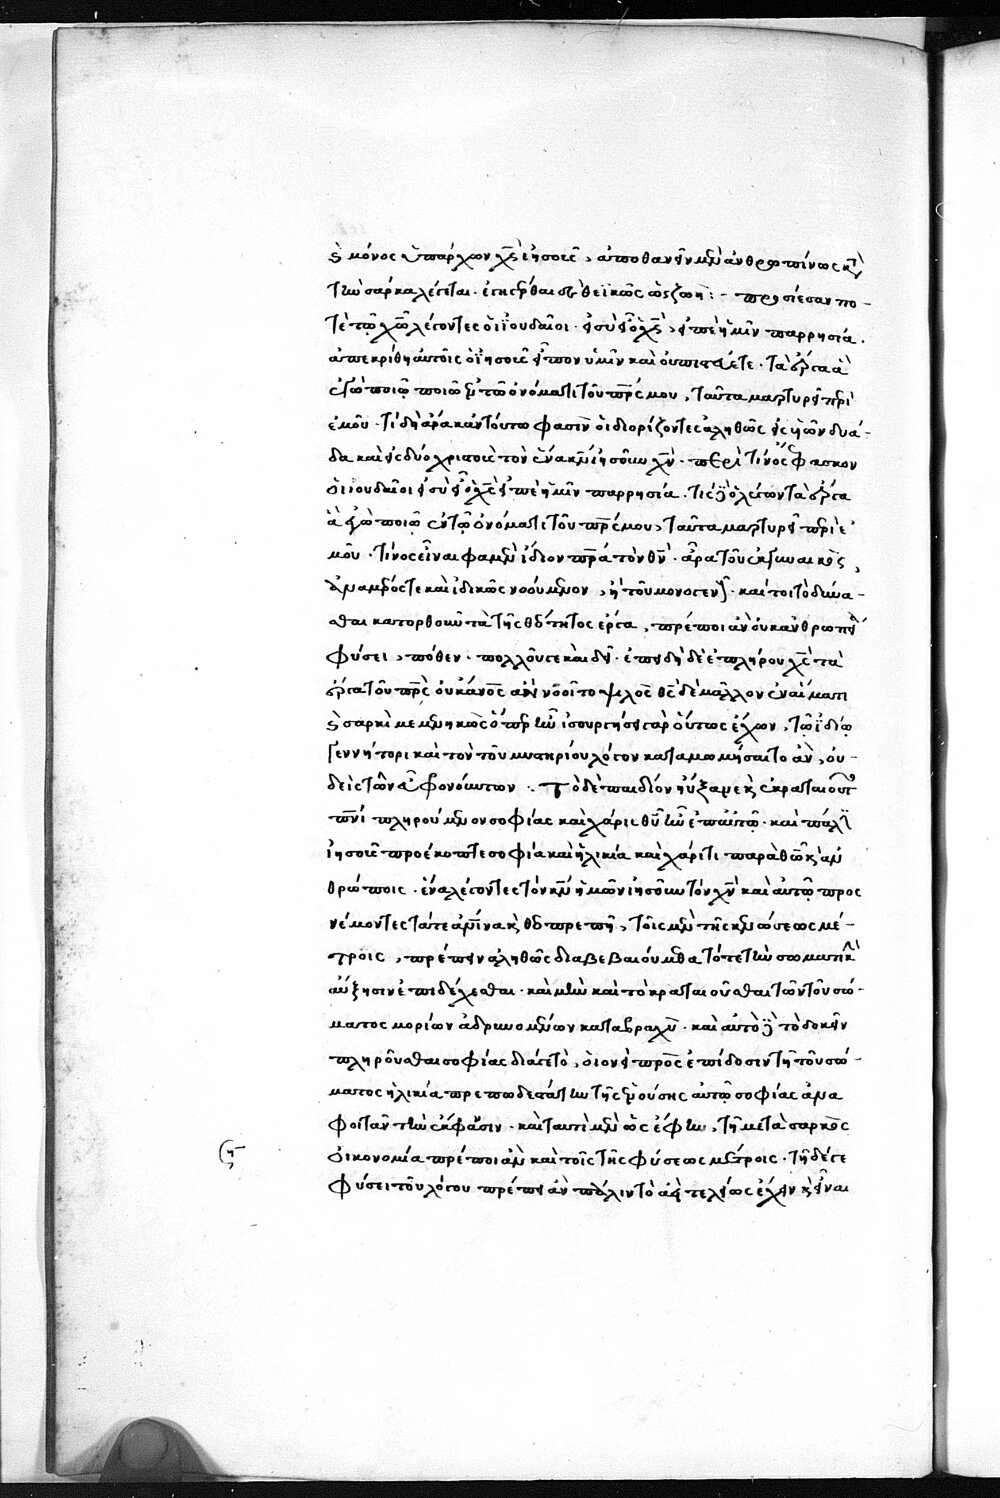 καὶ μόνος ὑπάρχων χς ἰησοῦς, ἀποθανεῖν μὲν ἀνθρωπίνως κατὰ
τὴν σάρκα λέγεται· ἐγηγέρθαι δὲ θεϊκῶς ὡς ζωή: προσίεσαν πο-
τὲ τῷ χῷ λέγοντες οἱ ἰουδαῖοι· εἰ σὺ εἶ ὁ χς, εἰπὲ ἡμῖν παρρησία.
ἀπεκρίθη αὐτοῖς ὁ ἰησοῦς εἶπον ὑμῖν καὶ οὐ πιστεύετε· τὰ ἔργα ἃ
ἐγὼ ποιῶ ποιῶ ἐν τῷ ὀνόματι τοῦ πρς μου, ταῦτα μαρτυρεῖ περὶ
ἐμοῦ· τί δὴ ἄρα κἂν τούτω φασὶν οἱ διορίζοντες ἀληθῶς εἰς υἱῶν δυά-
δα καὶ εἰς δύο χριστοὺς τὸν ἕνα κν ἰησοῦν χν· περὶ τίνος ἔφασκον
οἱ ἰουδαῖοι εἰ σὺ εἶ ὁ χς εἰπὲ ἡμῖν παρρησία· τίς δὲ ὁ λέγων τὰ ἔργα
ἃ ἐγὼ ποιῶ ἐν τῷ ὀνόματι τοῦ πρς μου, ταῦτα μαρτυρεῖ περὶ ἐ
μοῦ· τίνος εἶναι φαμὲν ἴδιον πρα τὸν θν· ἆρα τοῦ ἐκ γυναικὸς,
ἀναμέρος τε καὶ ἰδικῶς νοούμενον, ἢ τοῦ μονογενοῦς· καί τοι τὸ δύνα-
σθαι κατορθοῦν τὰ τῆς θεότητος ἔργα, πρέποι ἂν οὐκ ἀνθρωπεία
φύσει, πόθεν· πολλοῦ γε καὶ δεῖ· ἐπειδὴ δὲ ἐπλήρου χς τὰ
ἔργα τοῦ πρς οὐκ ἄνος ἂν νοοῖτο ψιλὸς θς δὲ μᾶλλον ἐν αἵματι
καὶ σαρκὶ μεμενηκὼς ὅπερ ἦν ἰσουργήσει γὰρ οὕτως ἔχων, τῷ ἰδίῳ
γεννήτορι καὶ τὸν τοῦ μυστηρίου λόγον καταμωμήσαιτο ἂν, οὐ-
δεὶς τῶν εὖ φρονούντων. Τὸ δὲ παιδίον ηὔξανε καὶ ἐκραταιοῦτο
πνι πληρούμενον σοφίας καὶ χάρις θυ ἦν ἐπ' αὐτῷ· καὶ πάλιν
ἰησοῦς προέκοπτε σοφία καὶ ἡλικία καὶ χάριτι παρὰ θῷ καὶ ἀν
θρώποις· ἕνα λέγοντες τὸν κν ἡμῶν ἰησοῦν τὸν χν καὶ αὐτῷ προς
νέμοντες τά τε ἀνινα καὶ θεοπρεπῆ, τοῖς μὲν τῆς κενώσεως μέ-
τροις, πρέπειν ἀληθῶς διαβεβαιούμεθα τό τε τὴν σωματικὴν
αὔξησιν ἐπιδέχεσθαι· καὶ μὴν καὶ τὸ κραταιοῦσθαι τῶν τοῦ σώ-
ματος μορίων ἁδρυνομένων κατὰ βραχὺ· καὶ αὐτὸ δὲ τὸ δοκεῖν
πληροῦσθαι σοφίας διά γε τὸ, οἱονεὶ πρὸς ἐπίδοσιν τῇ τοῦ σώ-
ματος ἡλικία πρεπωδεστάτην τῆς ἐνούσης αὐτῷ σοφίας ἀνα
φοιτᾶν τὴν ἔκφασιν· καὶ ταυτὶ μὲν ὡς ἔφην, τῇ μετὰ σαρκὸς
οἰκονομία πρέποι ἂν καὶ τοῖς τῆς φύσεως μέτροις· τῇ δέ γε
φύσει τοῦ λόγου πρέποι ἂν πάλιν τὸ ἀεὶ τελείως ἔχειν καὶ εἶναι